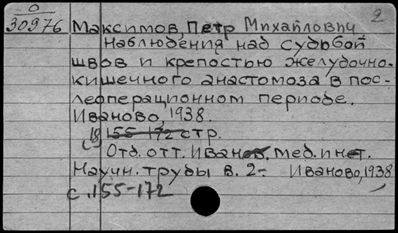 0
30976
2
Максимов, Петр Михайлович
Наблюдения над судьбой
швов и крепостью желудочно-
кишечного анастомоза в пос-
леоперационном периоде.
Иваново, 1938.
18 155-172 стр.
Отд. отт. Иванов. мед. инст.
Научн. труды в. 2- Иваново, 1938
с. 155-172